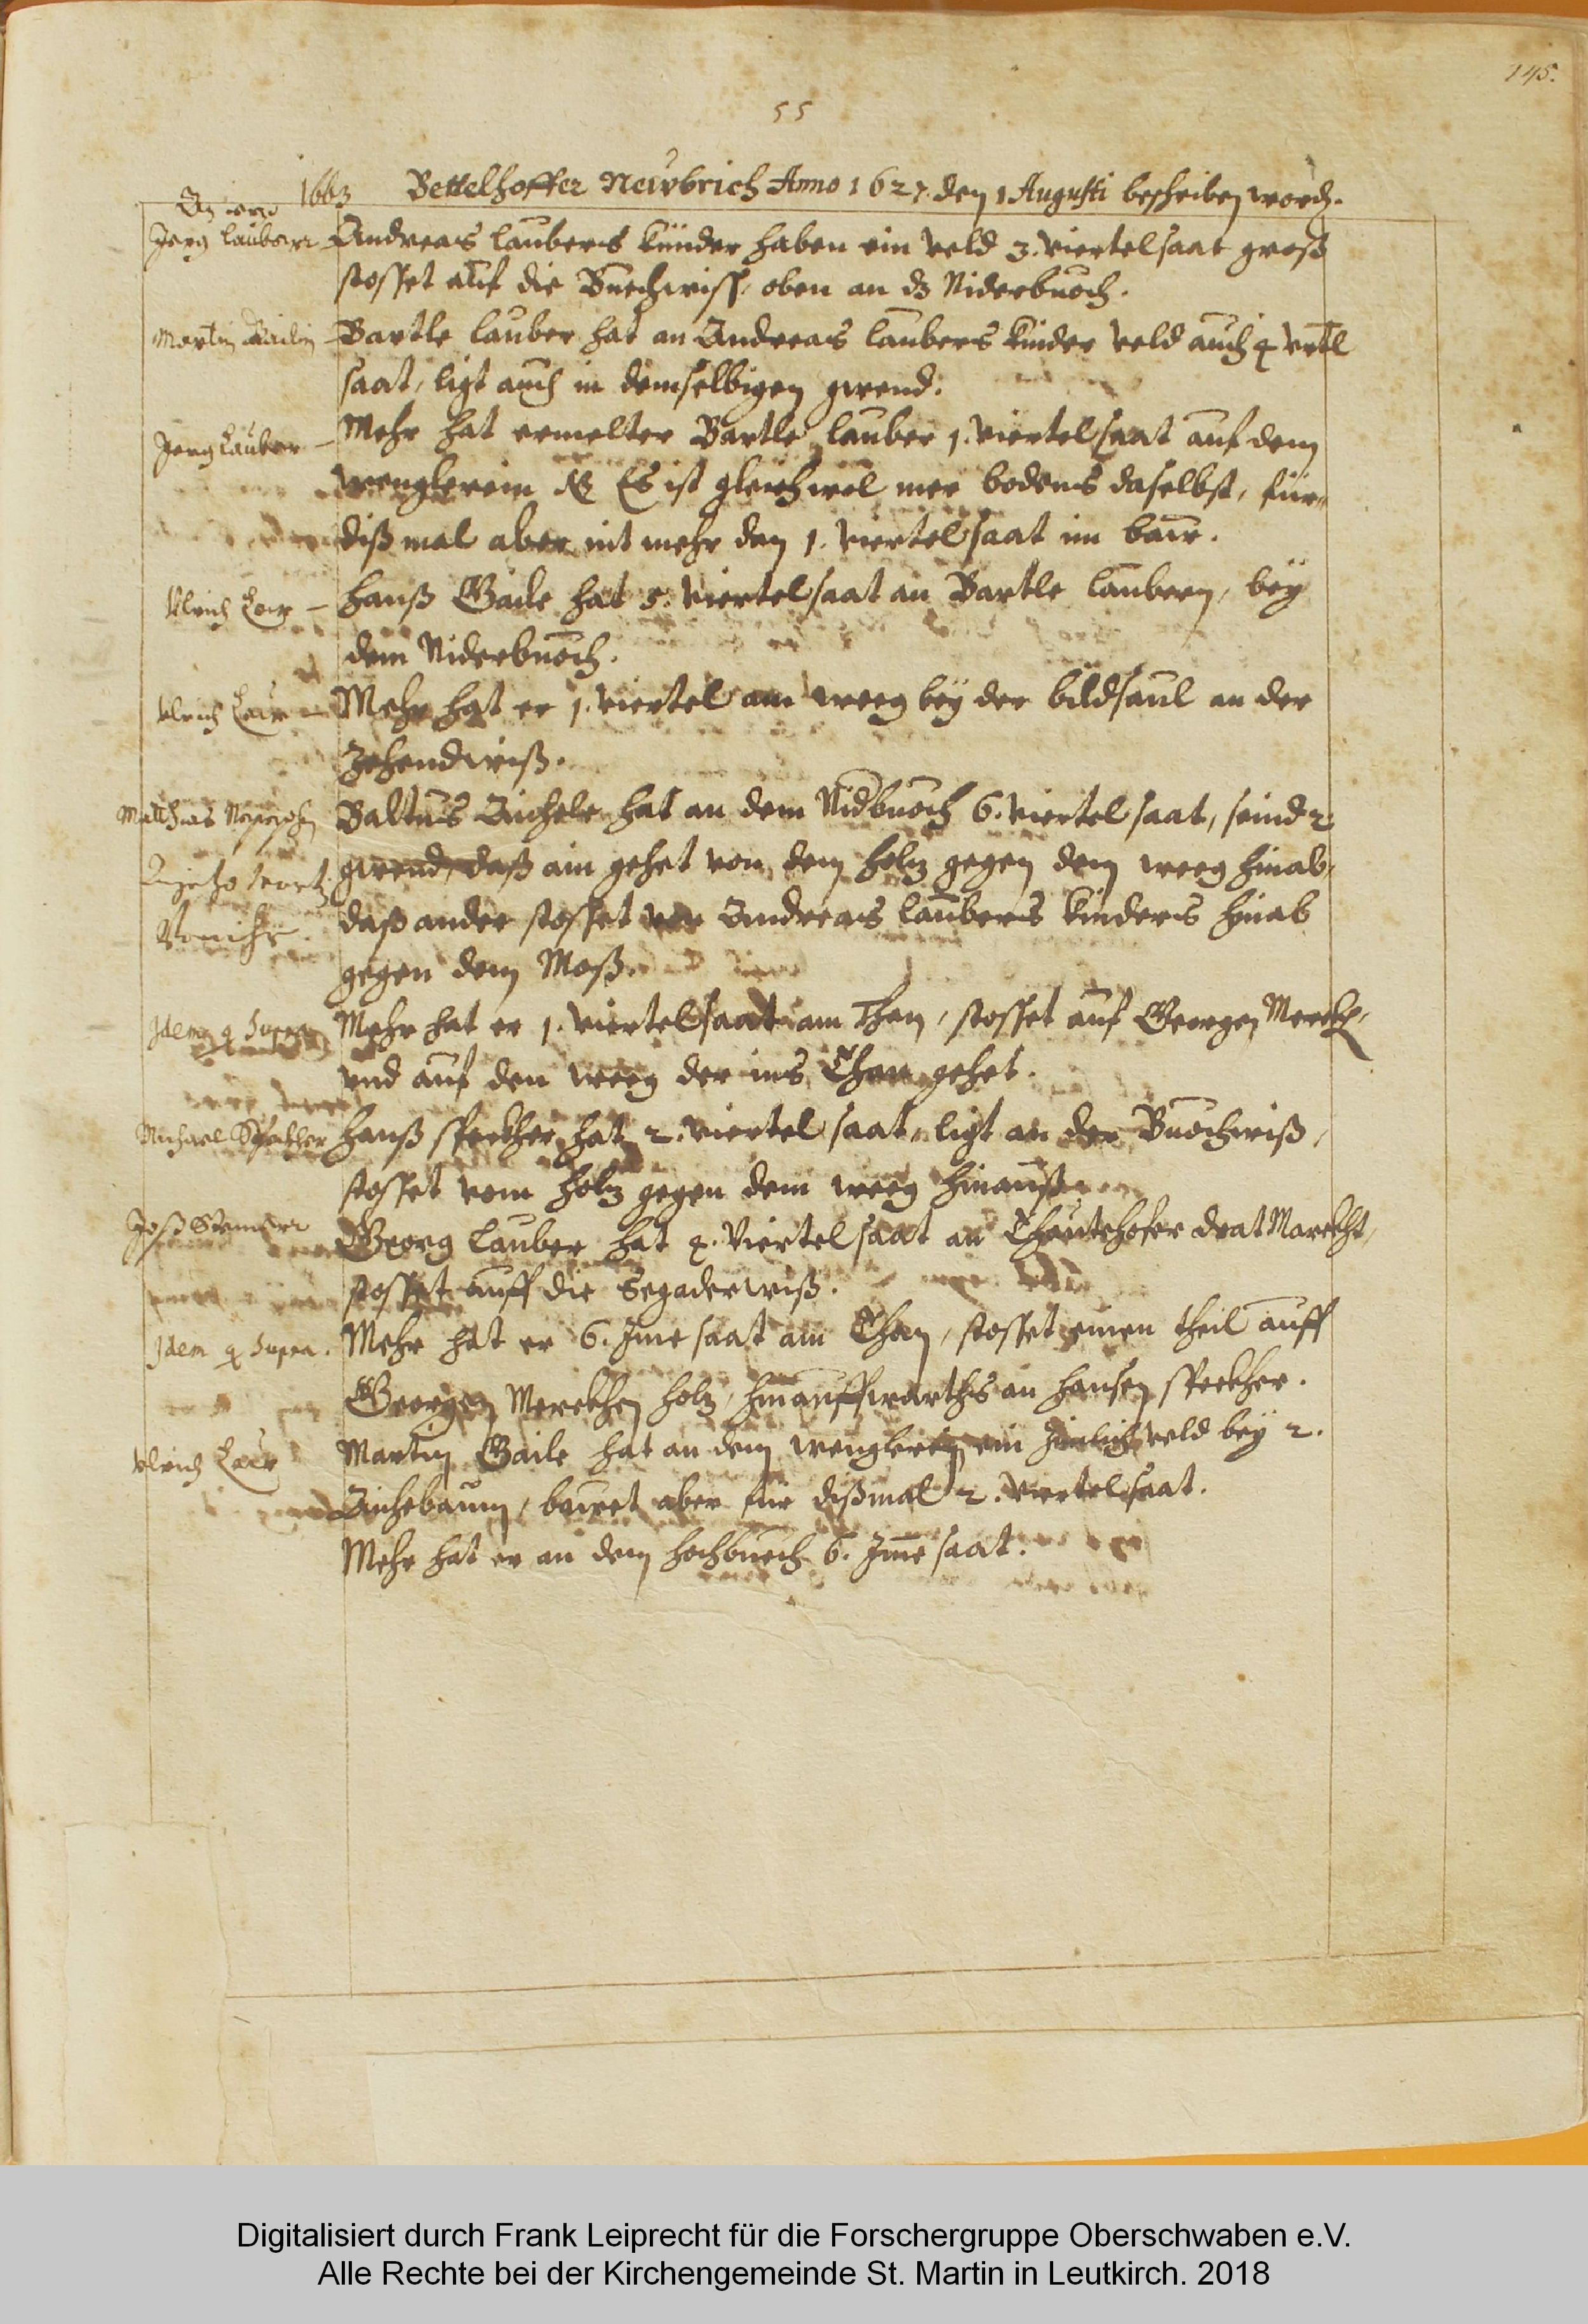 145.
55
1663 Bettelhoffer Newbrich Anno 1627. den 1 Augusti beschriben word.
Jerg Lauberr Andreas Laubers künder haben ein veld 3. viertel saat groß
stosset auf die Buechwiß, oben an dz Niderbuoch.
Martin Bailin Bartle Lauber hat an Andreas Laubers kinder veld auch 4 vrtl
saat, ligt auch in demselbigen gwend.
Jerg Lauber – Mehr hat ermelter Bartle Lauber 1. viertel saat auf dem
wenglerein Es ist gleichwol mer bodens daselbst, für„
dißmal aber nit mehr dan 1. viertel saat im baw.
Ulrich – Hanß Gaile hat 5. viertel saat an Bartle Laubern, bey
dem Niderbuoch.
Ulrich – Mehr hat er 1. viertel am weeg bey der bildsaul an der
Zehendwiß.
Matthias Baltus Aichele hat an dem Nidbuoch 6. viertel saat, seind 2
gwend, daß ain gehet von dem holz gegen dem weeg hinab,
daß ander stosset von Andreas Laubers kinders hinab
gegen dem Moß.
Idem q supra Mehr hat er 1. viertel saat am Than, stosset auf Georgen Merckh,
und auf den weeg der ins Than gehet.
Michael Hanß speckher hat 2. viertel saat, ligt an der Buochwiß,
stosset vom holz gegen dem weeg hinauß.
Joß Georg Lauber hat 4. viertel saat an
stosset auff die Segaderwiß.
Idem q supra. Mehr hat er 6. Jme saat am Than, stosset einen theil auff
Georgen Merckhen holz, hinauffwarths an Hansen speckher.
Ulrich Martin Gaile hat an dem wenglerein ein veld bey 2.
Aichebaum, bawet aber für dißmal 2. viertel saat.
Mehr hat er an dem hochbuech 6. Jme saat.
Digitalisiert durch Frank Leiprecht für die Forschergruppe Oberschwaben e.V.
Alle Rechte bei der Kirchengemeinde St. Martin in Leutkirch. 2018